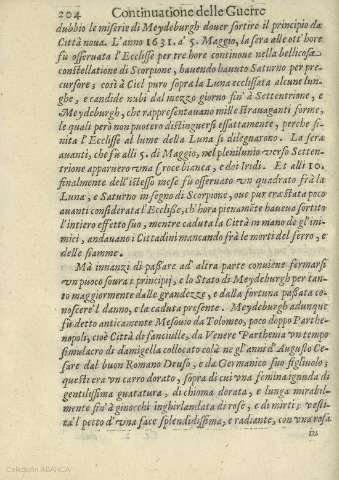 204 Continuatione delle Guerre
dubbio le miserie di Meydeburgh douer sortire il principio da
Città noua. L'anno 1631. a' 5. Maggio, la sera alle ott' hore
fu osseruata l'Ecclisse per tre hore continoue nella bellicosa
constellatione di Scorpione, hauendo hauuto Saturno per pre
cursore; così à Ciel puro sopra la Luna ecclissata alcune lun-
ghe, e candide nubi dal mezzo giorno sin' à Settentrione, e
Meydeburgh, che rappresentauano mille strauaganti forme,
le quali però non puotero distinguersi essattamente, perche fi-
nita l'Ecclisse al lume della Luna si dilegnarono. La sera
auanti, che fù alli 5. di Maggio, nel plenilunio verso Setten-
trione apparuero vna Croce bianca, e doi Iridi. Et alli 10.
finalmente dell'istesso mese fù osseruato vn quadrato frà la
Luna, e Saturno in segno di Scorpione, oue pur era stata poco
auanti considerata l'Ecclisse, ch'hora pienamẽte haueua sortito
l'intiero effetto suo, mentre caduta la Città in mano de gl'ini-
mici, andauano i Cittadini mancando frà le morti del ferro, e
delle fiamme.
Mà innanzi di passare ad altra parte conuiene fermarsi
vn puoco soura i principij, e lo Stato di Meydeburgh per tan-
to maggiormente dalle grandezze, e dalla fortuna passata co-
noscere l danno, e la caduta presente. Meydeburgh adunque
fù detto anticamente Mesouio da Tolomeo, poco doppo Parthe-
nopoli, cioè Città di fanciulle, da Venere Parthenia vn tempo
simulacro di damigella collocato colà ne gl'anni d'Augusto Ce-
sare dal buon Romano Druso, e da Germanico suo figliuolo;
questi era vn carro dorato, sopra di cui vna femina ignuda di
gentilissima guatatura, di chioma dorata, e lunga mirabil-
mente sin' à ginocchi inghirlandata di rose, e di mirti; vesti-
ta'l petto d'vna face splendidissima, e radiante, con vna rosa
in
Colección ABANCA